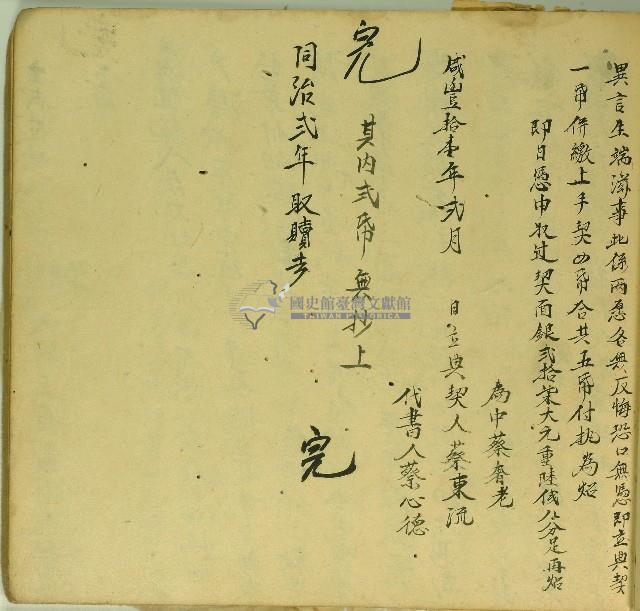 異言生端滋事此係兩愿各無反悔恐口無憑即立典契
一帋併繳上手契四帋合共五帋付执為炤
即日憑中収过契面銀弍拾柒大元重陸戔八分足再炤
為中蔡奢老
咸豐拾壹年弍月 日立典契人蔡東流
代書人蔡心德
其内弍帋無抄上
完
同治弍年取贖去
完
國史館臺灣文獻館
TAIWAN HISTORICA